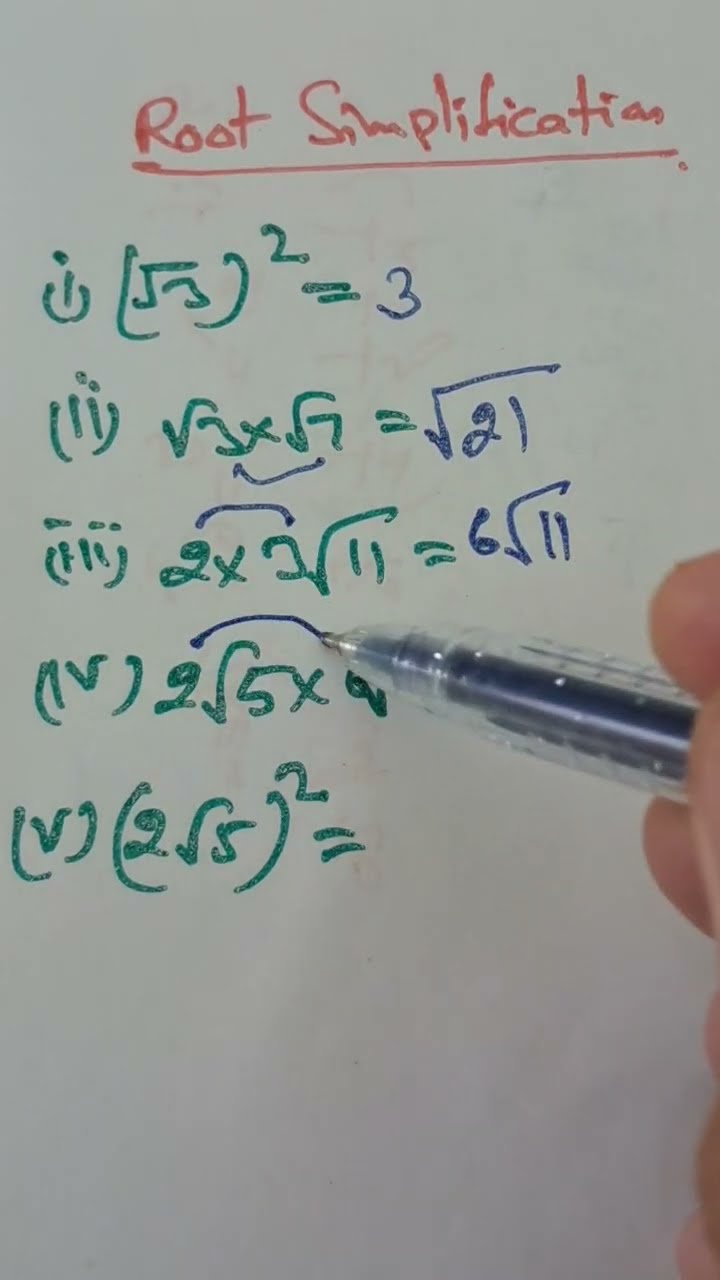 Root Simplification
(i) (√3)² = 3
(ii) √3×√7 = √21
(iii) 2×3√11 = 6√11
(iv) 2√5×
(v) (2√5)² =